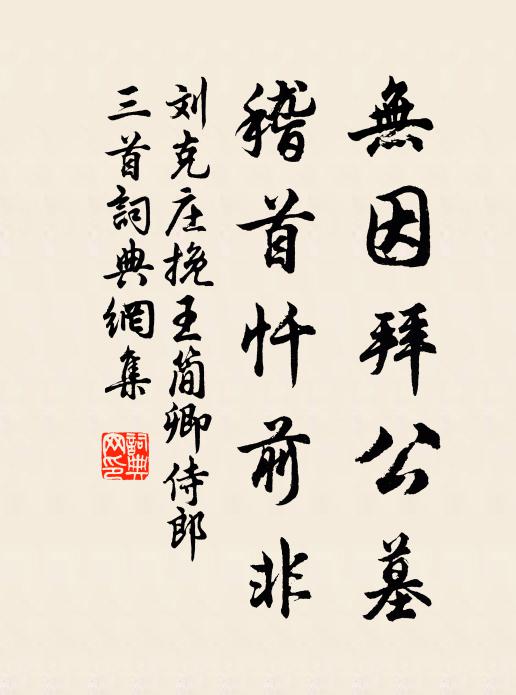 無因拜公墓
稽首忏前非
刘克庄挽王简卿侍郎
三首詞典網集
詞典
网印